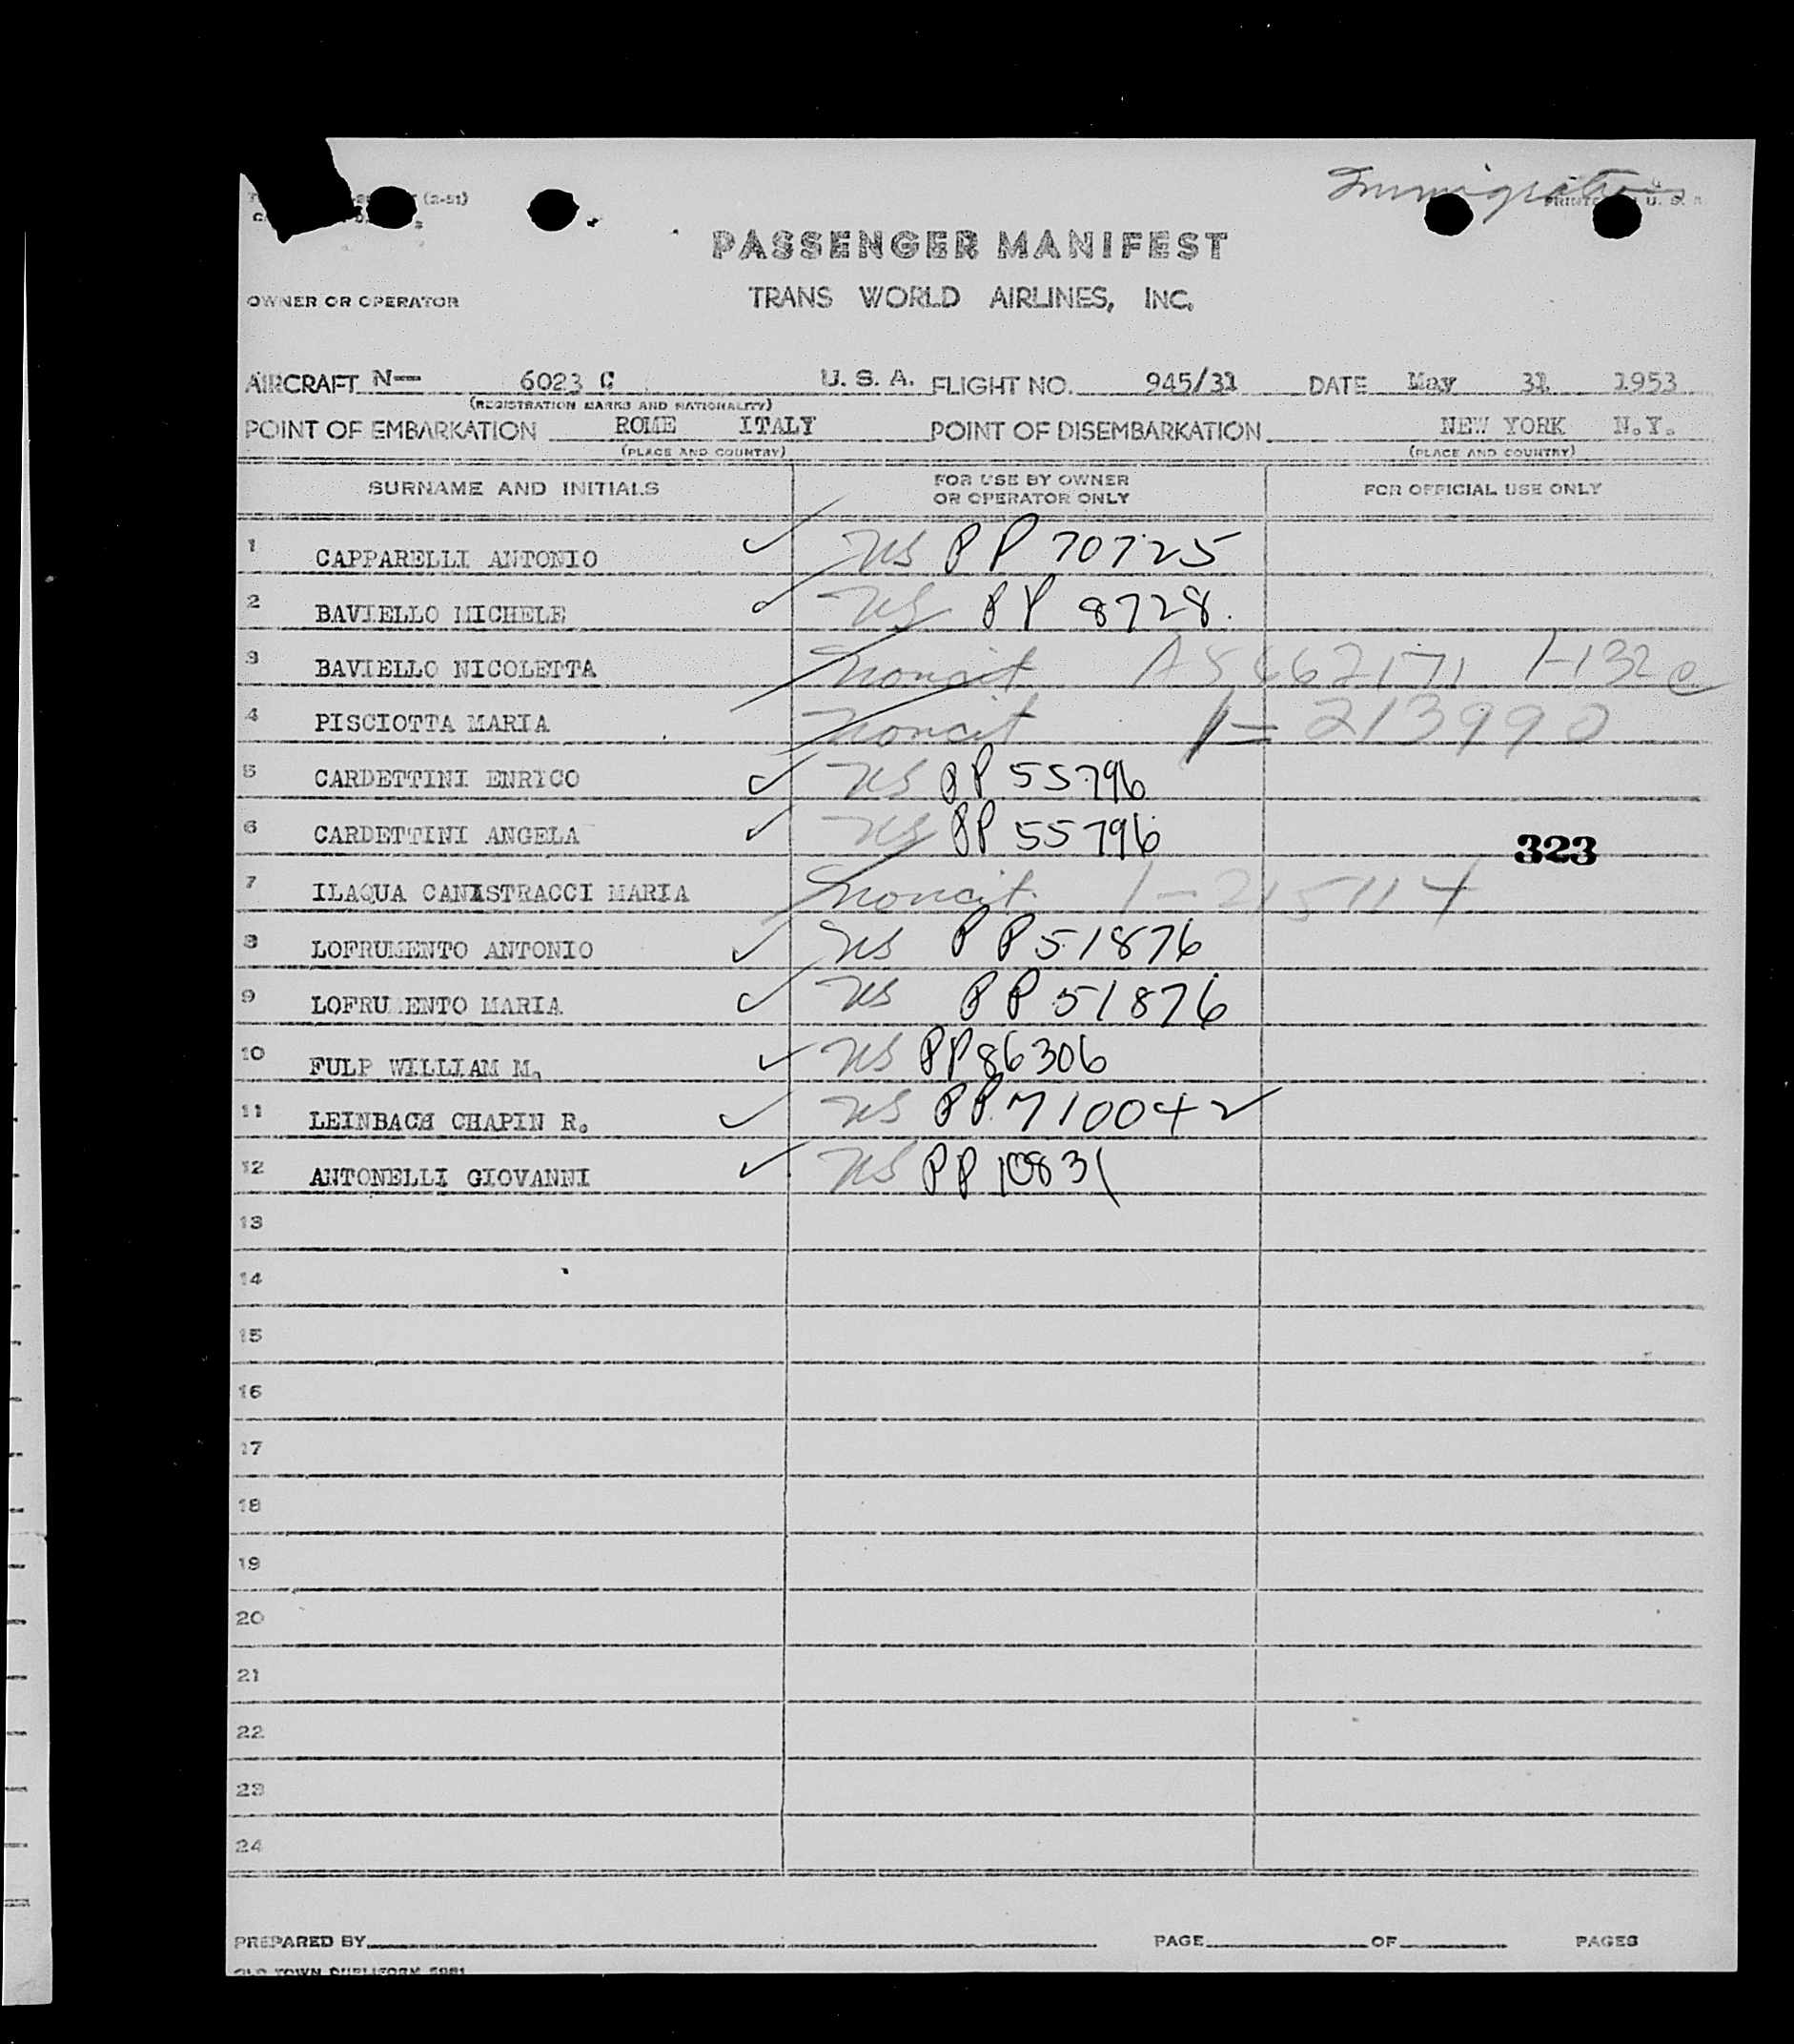 (2-51)
Immigration
PRINTED U. S. A.
PASSENGER MANIFEST
OWNER OR OPERATOR TRANS WORLD AIRLINES, INC.
AIRCRAFT N— 6023 C U. S. A. FLIGHT NO. 945/31 DATE May 31 1953
(REGISTRATION MARKS AND NATIONALITY)
POINT OF EMBARKATION ROME ITALY POINT OF DISEMBARKATION NEW YORK N.Y.
(PLACE AND COUNTRY) (PLACE AND COUNTRY)
SURNAME AND INITIALS FOR USE BY OWNER OR OPERATOR ONLY FOR OFFICIAL USE ONLY
1 CAPPARELLI ANTONIO ✓ US PP 70725
2 BAVIELLO MICHELE ✓ US PP 8728.
3 BAVIELLO NICOLETTA noncit A5662171 1-132 e
4 PISCIOTTA MARIA noncit 1-213990
5 CARDETTINI ENRICO ✓ US PP 55796
6 CARDETTINI ANGELA ✓ US PP 55796
323
7 ILAQUA CANISTRACCI MARIA noncit. 1-215114
8 LOFRUMENTO ANTONIO ✓ US PP 51876
9 LOFRUMENTO MARIA ✓ US PP 51876
10 FULP WILLIAM M. ✓ US PP 86306
11 LEINBACH CHAPIN R. ✓ US PP 710042
12 ANTONELLI GIOVANNI ✓ US PP 10831
13
14
15
16
17
18
19
20
21
22
23
24
PREPARED BY PAGE OF PAGES
OLD TOWN DUPLIFORM 5981